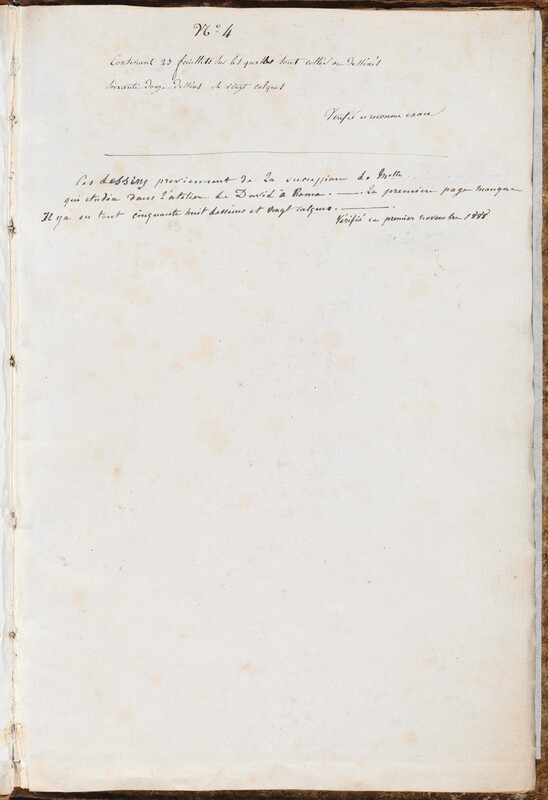 N° 4
Contenant 23 feuillets sur lesquelles sont collés ou dessinés
soixante douze dessins et vingt calques
Vérifié et reconnu exact
Ces dessins proviennent de la succession de
qui etudia dans l'atelier de David à Rome. — La première page manque
Il y a en tout cinquante huit dessins et vingt calques. —
Vérifié ce premier novembre 1888